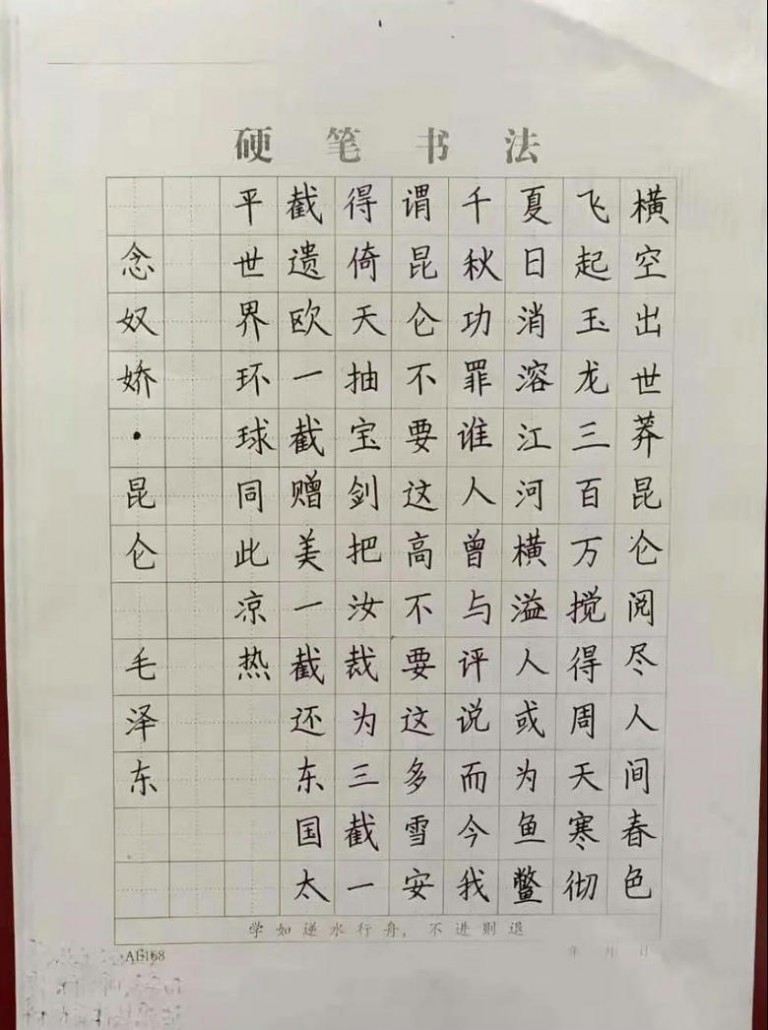 硬笔书法
横空出世莽昆仑阅尽人间春色
飞起玉龙三百万搅得周天寒彻
夏日消溶江河横溢人或为鱼鳖
千秋功罪谁人曾与评说而今我
谓昆仑不要这高不要这多雪安
得倚天抽宝剑把汝裁为三截一
截遗欧一截赠美一截还东国太
平世界环球同此凉热
念奴娇·昆仑 毛泽东
学如逆水行舟，不进则退
年 月 日